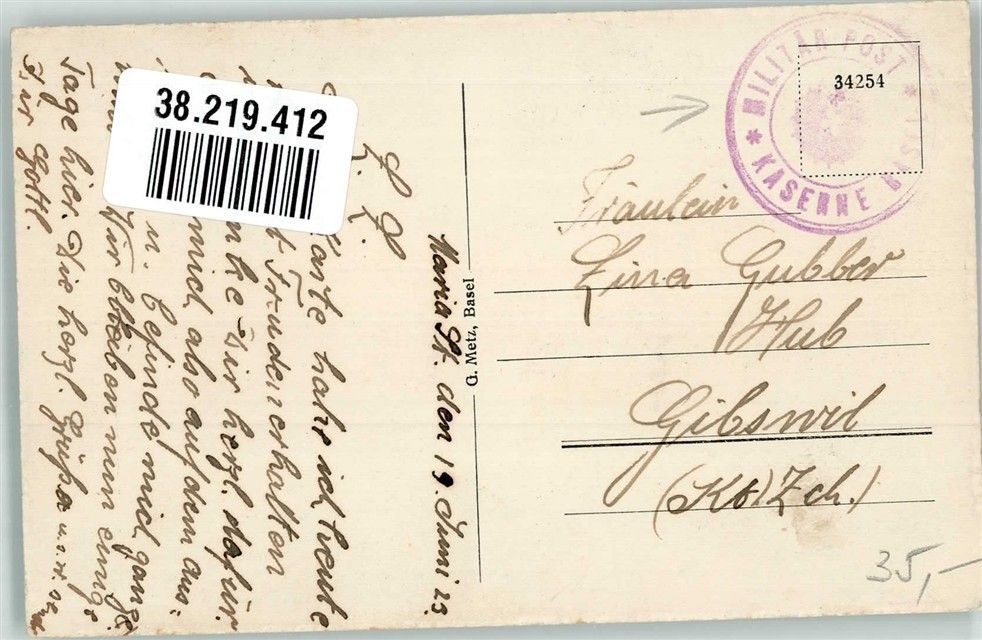 38.219.412
MILITÄR POST
* KASERNE BASEL *
34254
Fräulein
Lina Gubber
Hub
Gibswil
(Kt) Zch.)
35,-
G. Metz, Basel
Maria St. den 19. Juni 23.
L. L.
Karte habe ich heute
mit Freuden erhalten
danke Dir herzl. dafür.
mich also auf dem aus-
n. befinde mich ganz
Wir bleiben nun einige
Tage hier. Die herzl. Grüsse u.s.w.
Gottl.